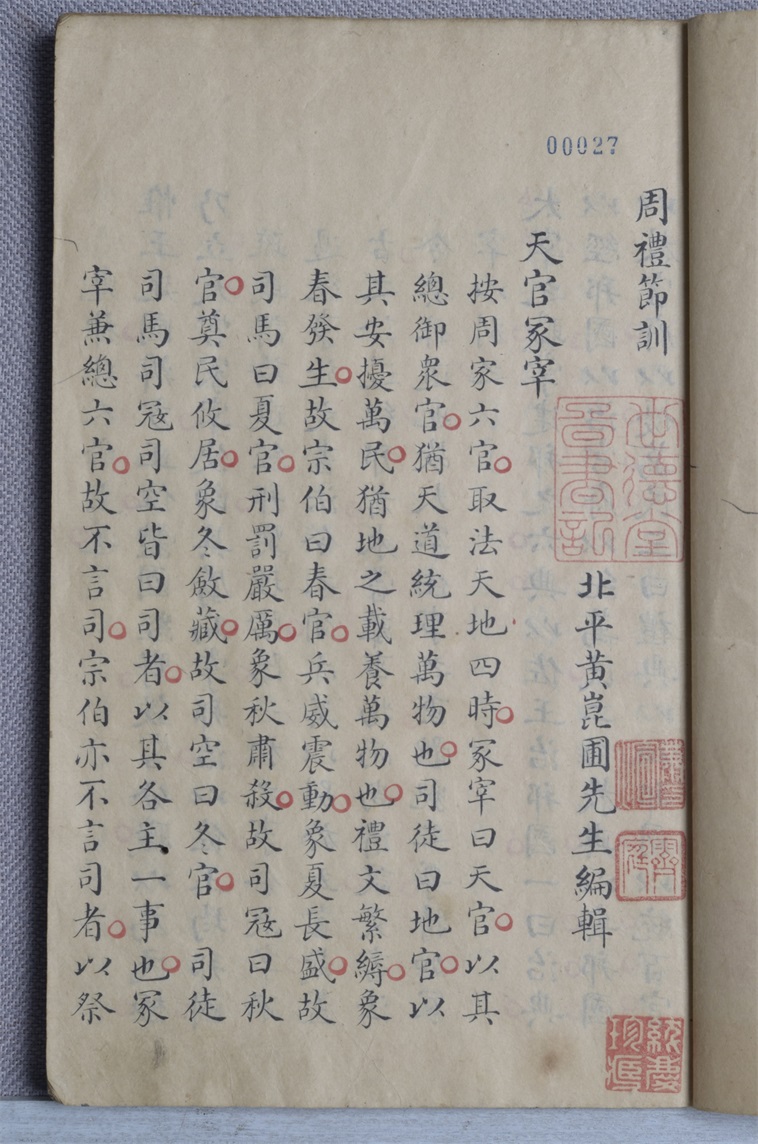 00027
周禮節訓
北平黃崑圃先生編輯
天官冢宰
按周家六官取法天地四時冢宰曰天官以其
總御衆官猶天道統理萬物也司徒曰地官以
其安擾萬民猶地之載養萬物也禮文繁縟象
春發生故宗伯曰春官兵威震動象夏長盛故
司馬曰夏官刑罰嚴厲象秋肅殺故司冦曰秋
官奠民攸居象冬斂藏故司空曰冬官司徒
司馬司冦司空皆曰司者以其各主一事也冢
宰兼總六官故不言司宗伯亦不言司者以祭